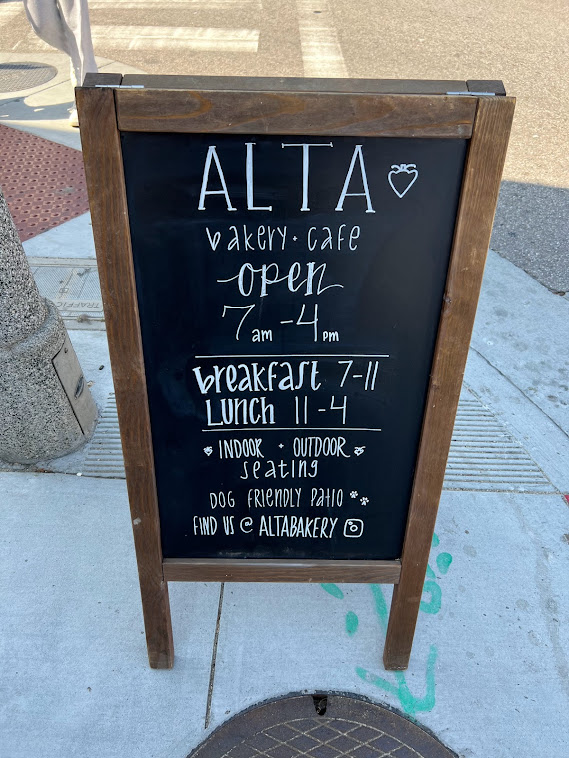 ALTA
bakery + cafe
open
7am - 4pm
breakfast 7-11
LUNCH 11-4
INDOOR + OUTDOOR
seating
DOG FRIENDLY PATIO
FIND US @ ALTABAKERY